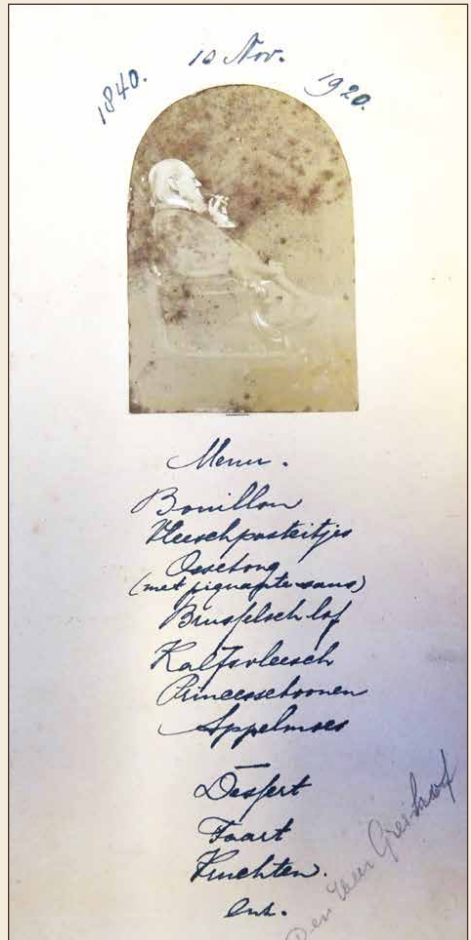 1840. 10 Nov. 1920.
Menu.
Bouillon
Vleeschpasteitjes
Ossetong
(met piquante saus)
Brusselsch lof
Kalfsvleesch
Princesseboonen
Appelmoes
—
Dessert
Taart
Vruchten.
enz.
Den Heer